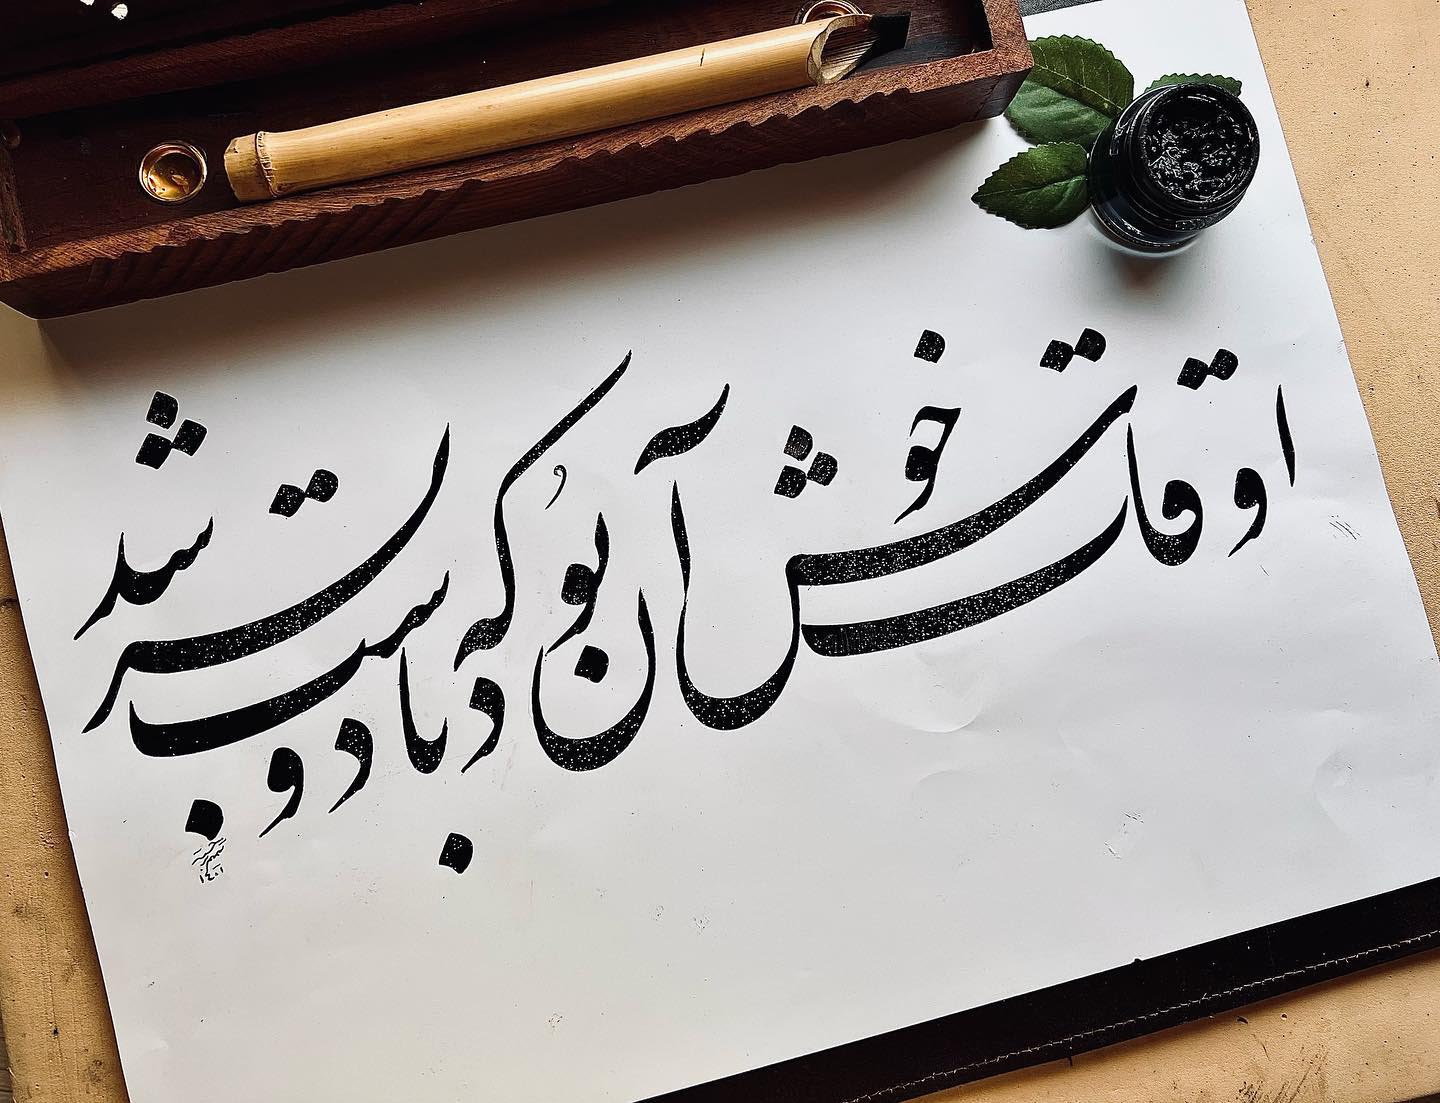 اوقات خوش آن بود که با دوست بسر شد
۱۴۰۱